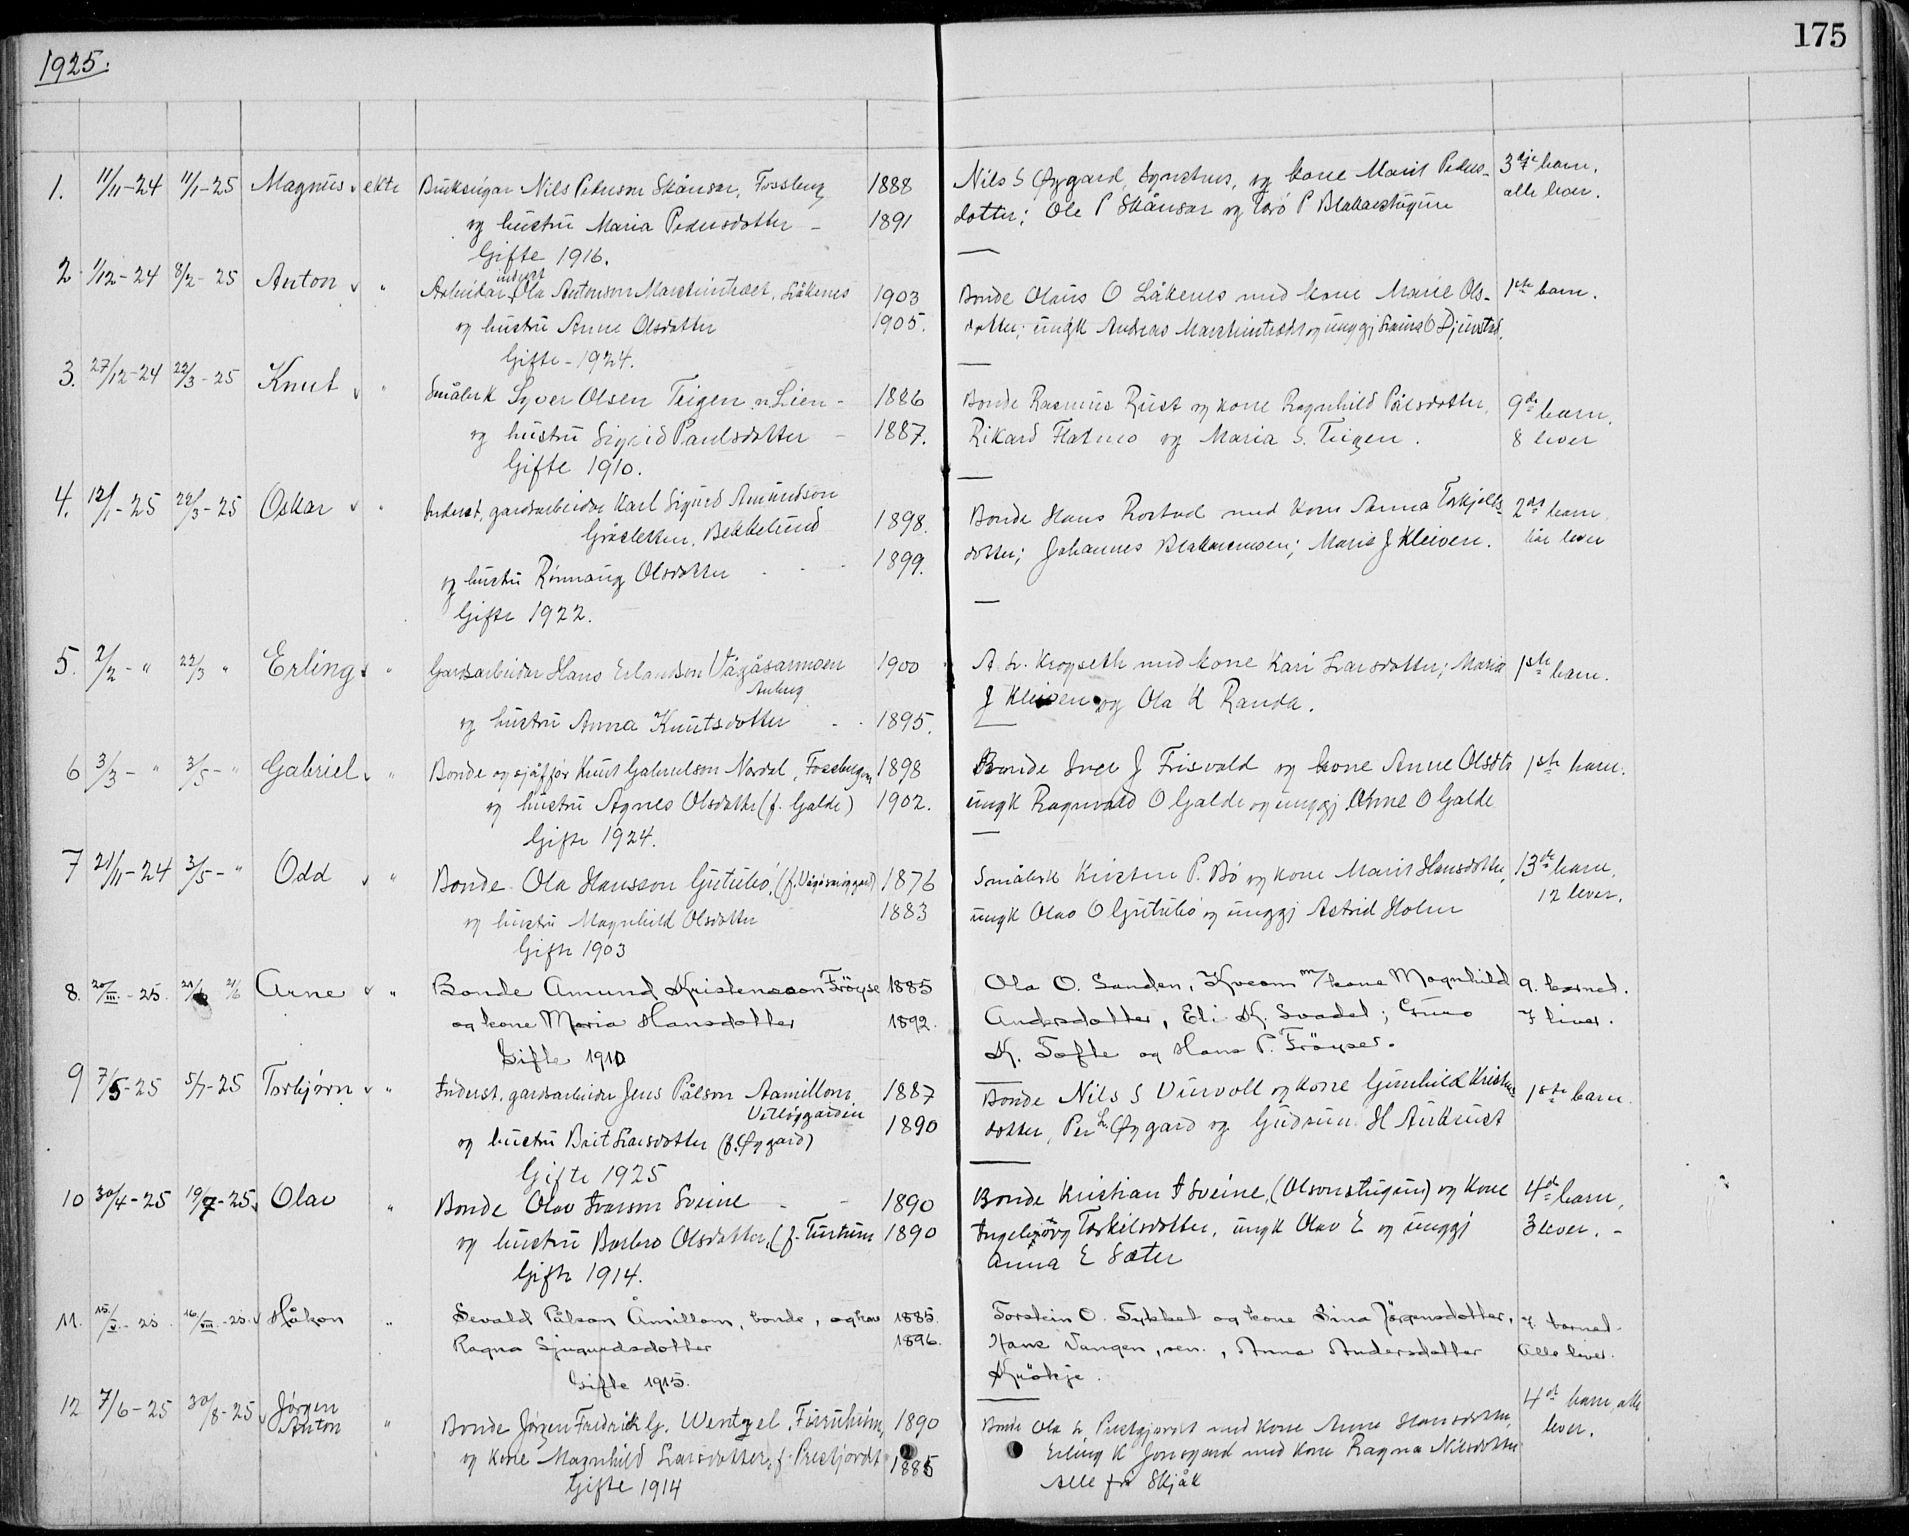 1925.
175
1. 11/11-24 11/1-25 Magnus ekte Brukseigar Nils Pederson Skånsar, Fossberg 1888
og hustru Maria Pedersdotter - 1891
Gifte 1916.
Nils S Øygard, og kone Marit Peders-
dotter; Ole P Skånsar og P Blakarstugun
3dje barn.
alle lever.
2 1/12-24 8/2-25 Anton " Arbeidar, inderst Ola Antonson Låkenes 1903
og hustru Anne Olsdotter 1905.
Gifte - 1924.
Bonde Olaus O Låkenes med kone Marie Ols-
dotter; ungk Andreas og unggj O
1ste barn.
3. 27/12-24 22/3-25 Knut " Småbrk Syver Olsen Teigen n. Lien - 1886
og hustru Sigrid Paulsdotter - 1887.
Gifte 1910.
Bonde Rasmus Rust og kone Ragnhild Pålsdotter,
Rikard Flatmo og Maria S. Teigen.
9de barn.
8 lever
4. 12/1-25 22/3-25 Oskar " Inderst, gardsarbeidar Karl Sigurd Amundson
Gråsletten, Bekkelund 1898.
og hustru Rønnaug Olsdotter - - - 1899.
Gifte 1922.
Bonde Hans Rostad med kone Anna Torkjells-
dotter; Johannes Blakarmoen; Maria J Kleiven.
2dre barn
bæ lever
5. 2/2 - " 22/3 " Erling " Gardsarbeidar Hans Erlandson Vågåsarmoen 1900
og hustru Anna Knutsdotter - - 1895.
A. L. Krogseth med kone Kari Larsdotter; Maria
J Kleiven og Ola K Randa.
1ste barn.
6 3/3 - " 3/5 - " Gabriel " Bonde og sjåfför Knut Gabrielson Nordal, Fossbergom 1898
og hustru Agnes Olsdotter (f. Galde) 1902.
Gifte 1924.
Bonde Iver J Frisvold og kone Anne Olsdtr
ungk Ragnvald O Galde og unggj Anne O Galde
1ste barn.
7 21/11-24 3/5 - " Odd " Bonde Ola Hansson Gutubø, (f. 1876
og hustru Magnhild Olsdotter 1883
Gifte 1903
Småbrk Kristen P. Bø og kone Marit Hansdotter,
ungk Olav O Gutubø og unggj Astrid Holm
13de barn,
12 lever.
8. 20/III-25. 21/6 21/6 Arne " Bonde Amund Kristensson Fröyse 1885
og kone Maria Hansdotter 1892.
Gifte 1910
Ola O. Sanden, Kveom m/kone Magnhild
Andersdotter, Eli K. Svadel; Guro
K. Tofte og Hans P. Fröyse.
9. barnet.
7 liver.
9 7/5-25 5/7-25 Torbjørn " Inderst. gardsarbeidar Jens Pålson Aamillom 1887
og hustru Brit Larsdotter (f. Øygard) 1890
Gifte 1925
Bonde Nils S Vinvoll og kone Gunhild Kristens
dotter, Per L. Øygard og Gudrun H Aukrust
1ste barn.
10 30/4-25 19/7-25 Olav " Bonde Olav Ivarson Sveine - 1890
og hustru Barbro Olsdotter, (f. Turtum 1890
Gifte 1914.
Bonde Kristian I Sveine, (Olsonstugun) og kone
Ingebjørg Torkilsdotter, ungk Olav E og unggj
Anna E Sæter
4d barn,
3 lever. -
11. 15/V-25 16/VIII-25 Håkon " Sevald Pålson Åmillom, bonde, og kone 1885.
Ragna Sjugurdsdotter 1896.
Gifte 1915.
Torstein O. Sykkel og kone Sina Jörgensdotter,
Hans Vangen, sen., Anna Andersdotter
Krökje.
7. barnet.
Alle lever.
12 7/6-25 30/8-25 Jørgen
Anton " Bonde Jørgen Fredrik G. Wentzel, Furuheim, 1890
og kone Magnhild Larsdotter, f. Prestjordet 1885
Gifte 1914
Bonde Ola L. Prestgjordet med kone Anne Hansdotter,
Erling K Jonsgard med kone Ragna Nilsdotter
Alle frå Skjåk
4de barn, alle
lever.